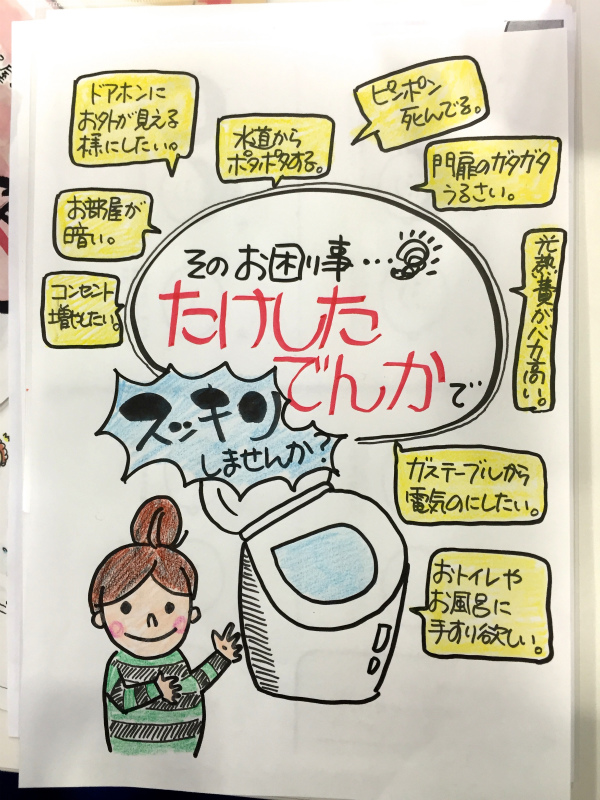 ドアホンに
お外が見える
様にしたい。
水道から
ポタポタする。
ピンポン
死んでる。
門扉のガタガタ
うるさい。
お部屋が
暗い。
コンセント
増やしたい。
光熱費がバカ高い。
そのお困り事…
たけした
でんかで
スッキリ
しませんか?
ガステーブルから
電気のにしたい。
おトイレや
お風呂に
手すり欲しい。